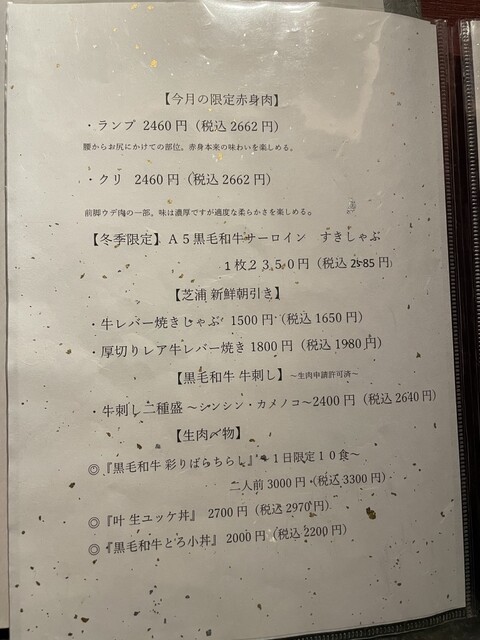 【今月の限定赤身肉】
・ランプ 2460円（税込2662円）
腰からお尻にかけての部位。赤身本来の味わいを楽しめる。
・クリ 2460円（税込2662円）
前脚ウデ肉の一部。味は濃厚ですが適度な柔らかさを楽しめる。
【冬季限定】Ａ５黒毛和牛サーロイン すきしゃぶ
１枚２３５０円（税込2585円）
【芝浦 新鮮朝引き】
・牛レバー焼きしゃぶ 1500円（税込1650円）
・厚切りレア牛レバー焼き 1800円（税込1980円）
【黒毛和牛 牛刺し】～生肉申請許可済～
・牛刺し二種盛 ～シンシン・カメノコ～2400円（税込2640円）
【生肉〆物】
◎『黒毛和牛 彩りばらちらし』～１日限定１０食～
二人前3000円（税込3300円）
◎『叶 生ユッケ丼』 2700円（税込2970円）
◎『黒毛和牛とろ小丼』 2000円（税込2200円）